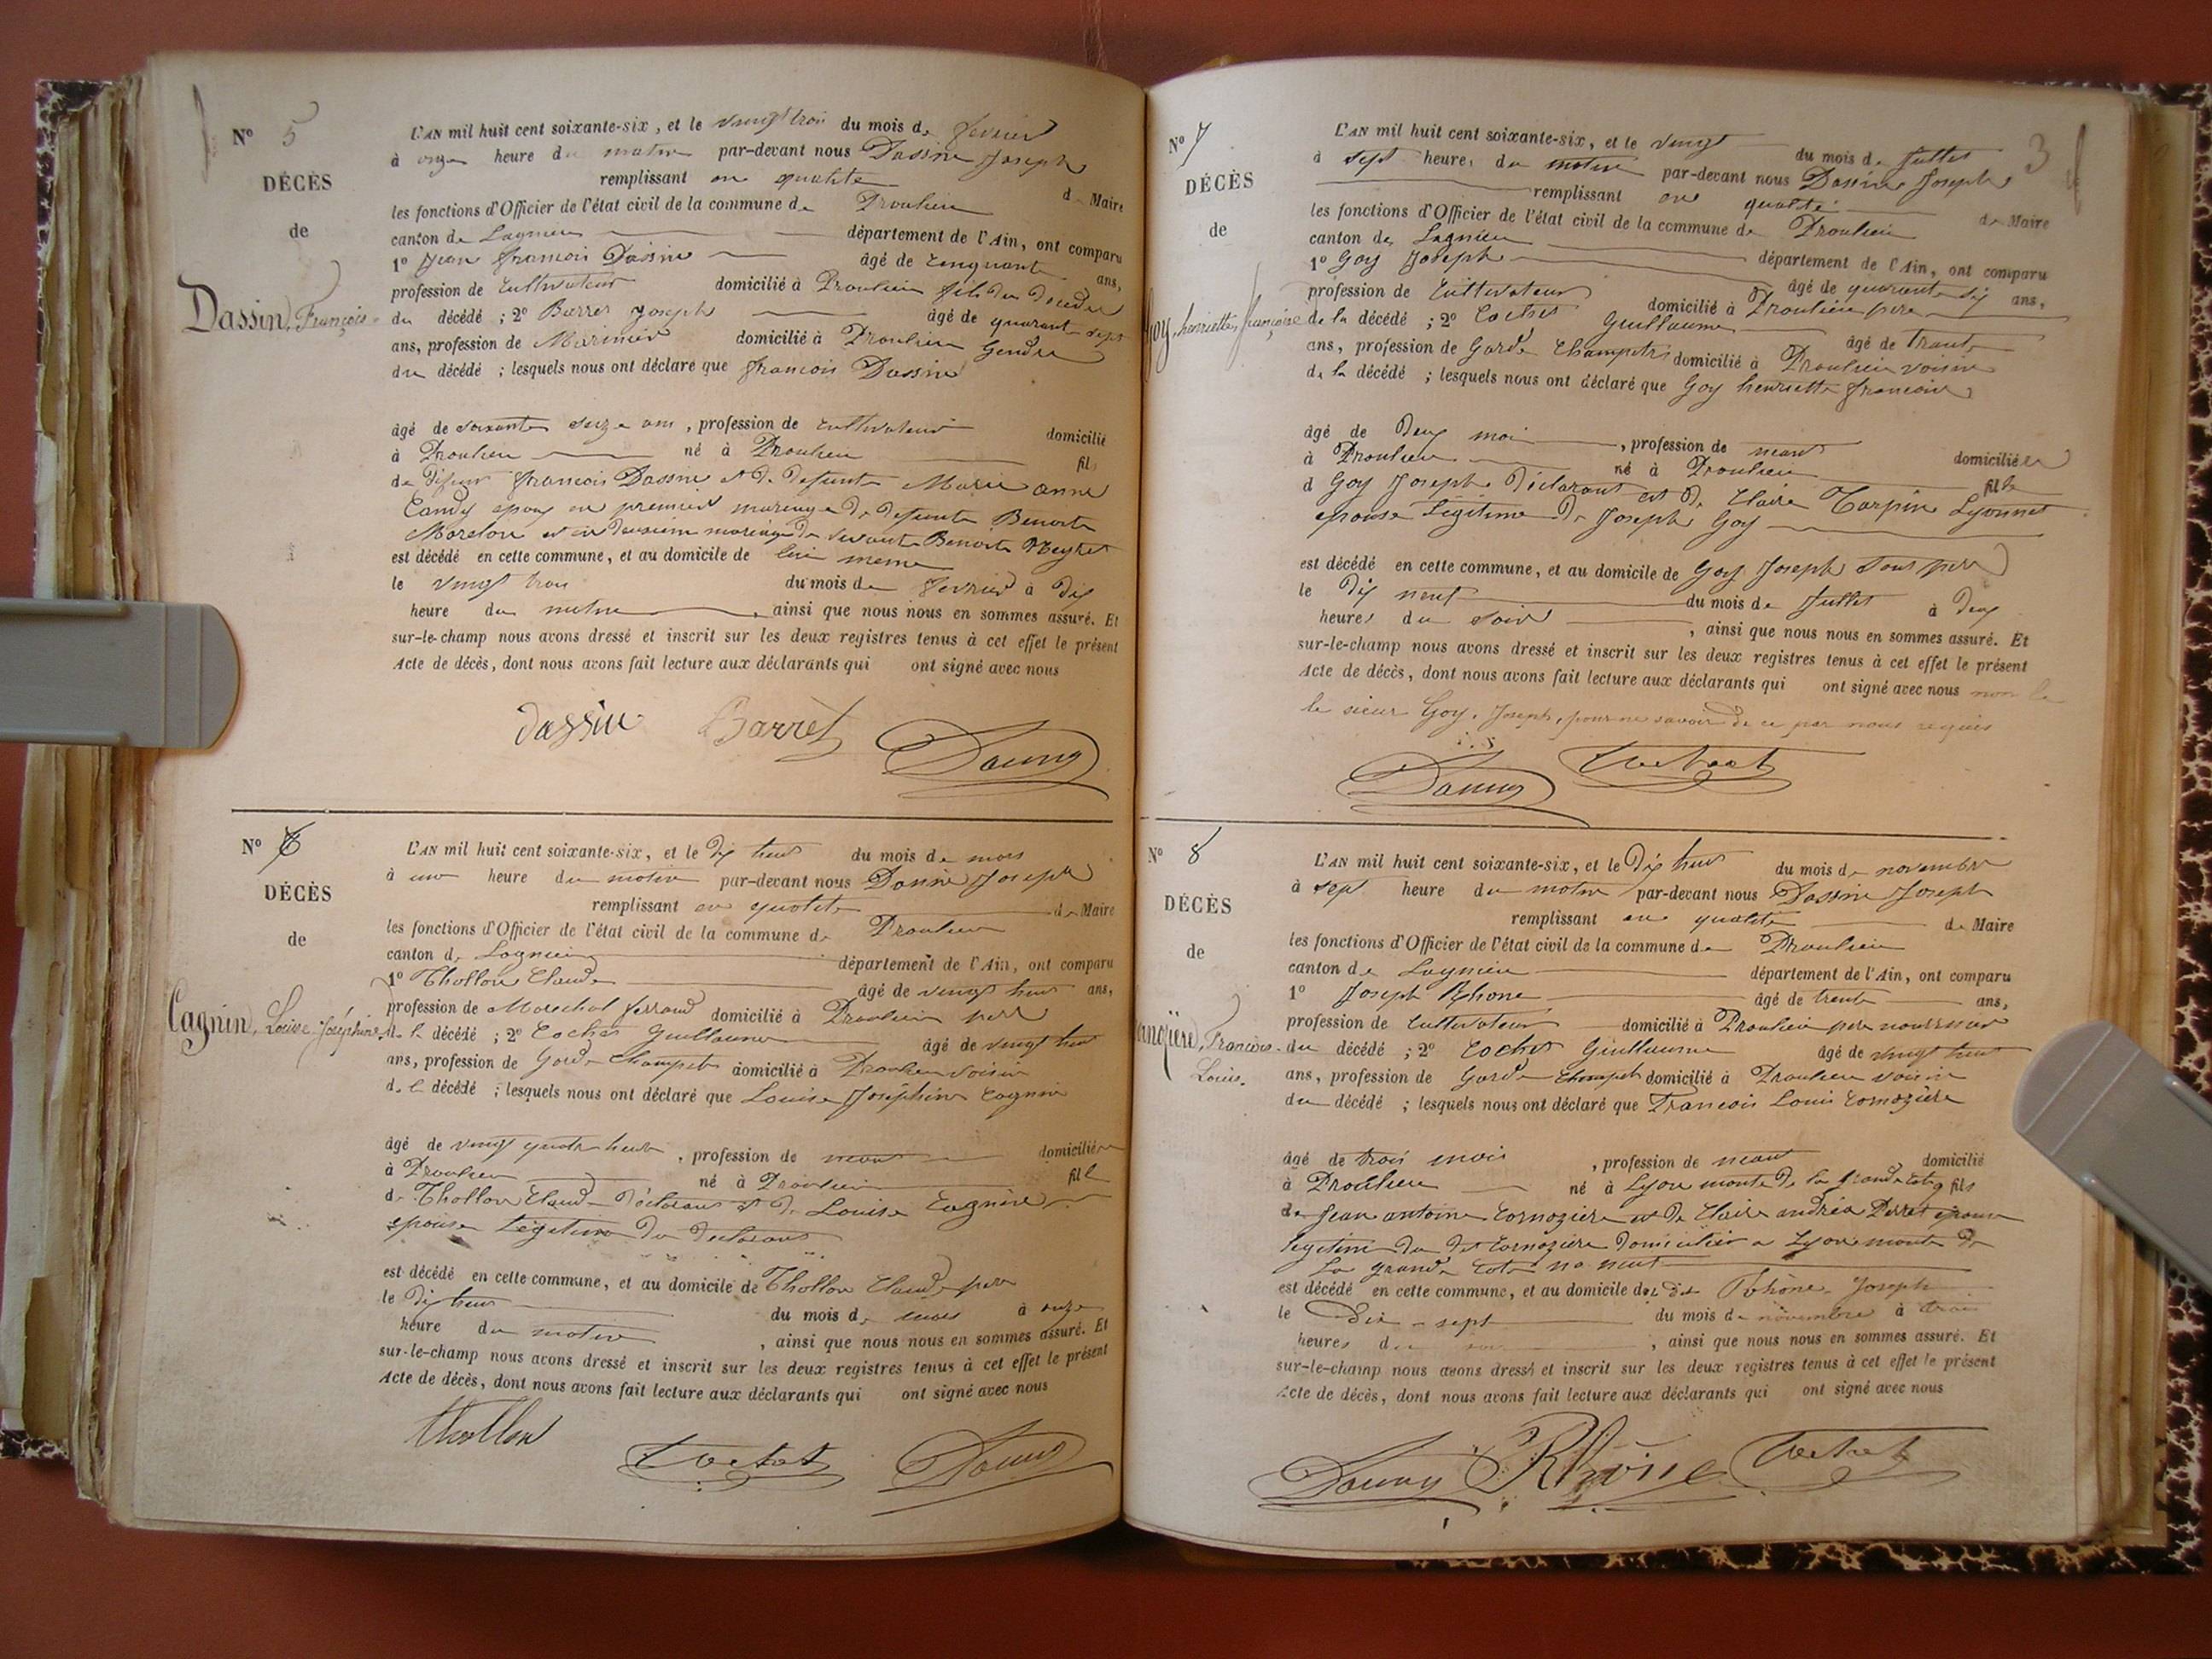 N° 5
DÉCÈS
de
Dassin, François
L'AN mil huit cent soixante-six, et le vingt trois du mois de fevrier
à onze heure du matin par-devant nous Dassin Joseph
remplissant en qualité de Maire
les fonctions d'Officier de l'état civil de la commune de Proulieu
canton de Lagnieu département de l'Ain, ont comparu
1° Jean francois Dassin âgé de cinquante ans,
profession de cultivateur domicilié à Proulieu fils du décédé
du décédé ; 2° Barret Joseph âgé de quarant sept
ans, profession de Marinier domicilié à Proulieu Gendre
du décédé ; lesquels nous ont déclaré que francois Dassin
âgé de soixante seize ans, profession de cultivateur domicilié
à Proulieu né à Proulieu fils
de défunt francois Dassin et de defunte Marie anne
Candy epoux en premier mariage de defunte Benoite
Morelon et en deuxiem mariage de vivante Benoite
est décédé en cette commune, et au domicile de lui meme
le vingt trois du mois de fevrier à dix
heure du matin, ainsi que nous nous en sommes assuré. Et
sur-le-champ nous avons dressé et inscrit sur les deux registres tenus à cet effet le présent
Acte de décès, dont nous avons fait lecture aux déclarants qui ont signé avec nous
dassin Barret
N° 6
DÉCÈS
de
Cagnin, Louise Joséphine
L'AN mil huit cent soixante-six, et le dix huit du mois de mars
à une heure du matin par-devant nous Dassin Joseph
remplissant en qualité de Maire
les fonctions d'Officier de l'état civil de la commune de Proulieu
canton de Lagnieu département de l'Ain, ont comparu
1° Thollon Claude âgé de vingt huit ans,
profession de Marechal ferrand domicilié à Proulieu pere
de la décédé ; 2° Cochet Guillaume âgé de vingt huit
ans, profession de Garde Champet domicilié à Proulieu voisin
de la décédé ; lesquels nous ont déclaré que Louise Joséphine Cagnin
âgé de vingt quatre heure, profession de neant domiciliée
à Proulieu né à Proulieu fille
de Thollon Claude déclarant et de Louise Cagnin
epouse légitime du declarant
est décédé en cette commune, et au domicile de Thollon Claude pere
le dix huit du mois de mars à onze
heure du matin, ainsi que nous nous en sommes assuré. Et
sur-le-champ nous avons dressé et inscrit sur les deux registres tenus à cet effet le présent
Acte de décès, dont nous avons fait lecture aux déclarants qui ont signé avec nous
thollon Cochet
3
N° 7
DÉCÈS
de
Goy, henriette françoise
L'AN mil huit cent soixante-six, et le vingt du mois de Juillet
à sept heures du matin par-devant nous Dassin Joseph
remplissant en qualité de Maire
les fonctions d'Officier de l'état civil de la commune de Proulieu
canton de Lagnieu département de l'Ain, ont comparu
1° Goy Joseph âgé de quarante six ans,
profession de cultivateur domicilié à Proulieu pere
de la décédé ; 2° Cochet Guillaume âgé de trante
ans, profession de Garde Champetre domicilié à Proulieu voisin
de la décédé ; lesquels nous ont déclaré que Goy henriette francoise
âgé de deux mois, profession de neant domiciliée
à Proulieu né à Proulieu fille
d Goy Joseph déclarant et de Claire Carpin Lyonnet
epouse légitime de Joseph Goy
est décédé en cette commune, et au domicile de Goy Joseph sont pere
le dix neuf du mois de Juillet à deux
heures du soir, ainsi que nous nous en sommes assuré. Et
sur-le-champ nous avons dressé et inscrit sur les deux registres tenus à cet effet le présent
Acte de décès, dont nous avons fait lecture aux déclarants qui ont signé avec nous non le
le sieur Goy, Joseph, pour ne savoir de ce par nous requis
Cochet
N° 8
DÉCÈS
de
François
Louis.
L'AN mil huit cent soixante-six, et le dix huit du mois de novembre
à sept heure du matin par-devant nous Dassin Joseph
remplissant en qualité de Maire
les fonctions d'Officier de l'état civil de la commune de Proulieu
canton de Lagnieu département de l'Ain, ont comparu
1° Joseph Rhone âgé de trente ans,
profession de cultivateur domicilié à Proulieu pere nourricier
du décédé ; 2° Cochet Guillaume âgé de vingt huit
ans, profession de Garde Champet domicilié à Proulieu voisin
du décédé ; lesquels nous ont déclaré que Francois Louis Cornozière
âgé de trois mois, profession de neant domicilié
à Proulieu né à Lyon monté de la grande cote fils
de Jean antoine Cornozière et de Claire andréa Perret epouse
legitime du dit Cornozière domicilier a Lyon monté de
la grande cote
est décédé en cette commune, et au domicile du dit Rhône Joseph
le dix-sept du mois de novembre à trois
heures du soir, ainsi que nous nous en sommes assuré. Et
sur-le-champ nous avons dressé et inscrit sur les deux registres tenus à cet effet le présent
Acte de décès, dont nous avons fait lecture aux déclarants qui ont signé avec nous
Rhône Cochet